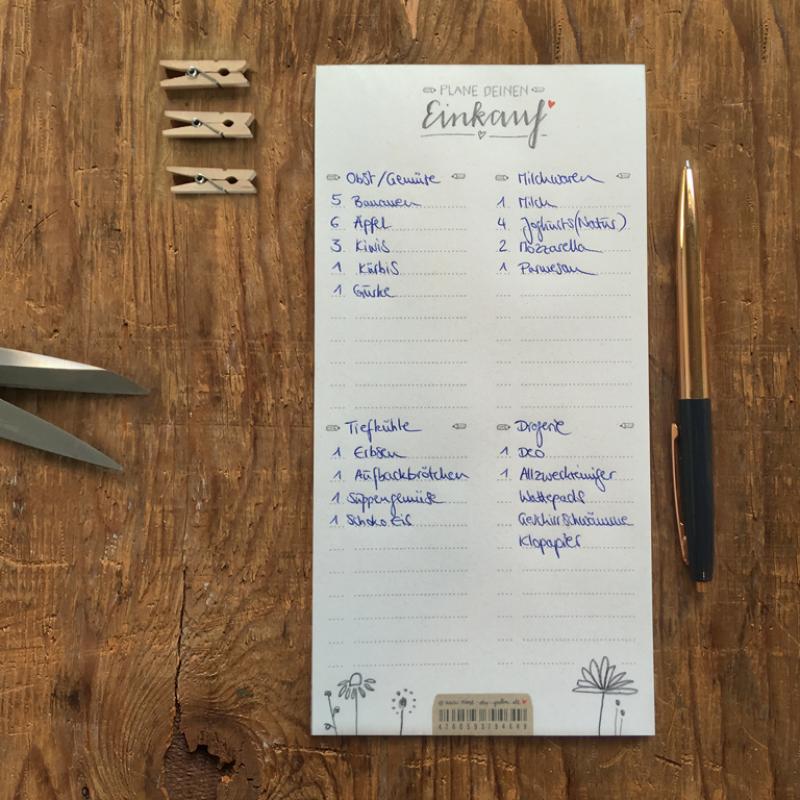 PLANE DEINEN
Einkauf
Obst/Gemüse
5 Bananen
6 Äpfel
3 Kiwis
1 Kürbis
1 Gurke
Milchwaren
1 Milch
4 Joghurts (Natur)
2 Mozzarella
1 Parmesan
Tiefkühle
1 Erbsen
1 Aufbackbrötchen
1 Suppengemüse
1 Schoko Eis
Drogerie
1 Deo
1 Allzweckreiniger
Wattepads
Geschirrschwämme
Klopapier